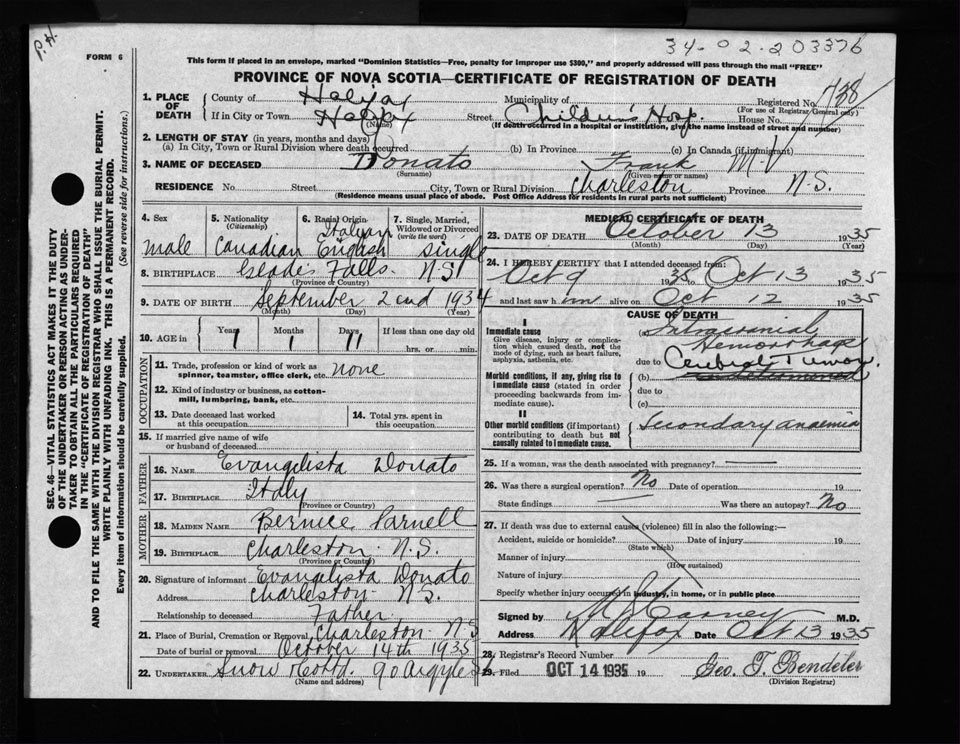 P.H.
34-02-203376
FORM 6
This form if placed in an envelope, marked "Dominion Statistics—Free, penalty for improper use $300," and properly addressed will pass through the mail "FREE"
PROVINCE OF NOVA SCOTIA—CERTIFICATE OF REGISTRATION OF DEATH
SEC. 46—VITAL STATISTICS ACT MAKES IT THE DUTY
OF THE UNDERTAKER OR PERSON ACTING AS UNDER-
TAKER TO OBTAIN ALL THE PARTICULARS REQUIRED
IN THE "CERTIFICATE OF REGISTRATION OF DEATH"
AND TO FILE THE SAME WITH THE DIVISION REGISTRAR WHO SHALL ISSUE THE BURIAL PERMIT.
WRITE PLAINLY WITH UNFADING INK. THIS IS A PERMANENT RECORD.
Every item of information should be carefully supplied. (See reverse side for instructions.)
1. PLACE OF DEATH County of Halifax Municipality of Registered No.
(For use of Registrar General only)
If in City or Town Halifax Street Children's Hosp. House No.
(Name) (If death occurred in a hospital or institution, give the name instead of street and number)
2. LENGTH OF STAY (in years, months and days)
(a) In City, Town or Rural Division where death occurred (b) In Province (c) In Canada (if immigrant)
3. NAME OF DECEASED Donato Frank M.V
(Surname) (Given name or names)
RESIDENCE No Street City, Town or Rural Division Charleston Province N.S.
(Residence means usual place of abode. Post Office Address for residents in rural parts not sufficient)
4. Sex male
5. Nationality (Citizenship) Canadian
6. Racial Origin Italyan English
7. Single, Married, Widowed or Divorced (write the word) single
8. BIRTHPLACE Falls. N.S
(Province or Country)
9. DATE OF BIRTH September 2nd 1934
(Month) (Day) (Year)
10. AGE in Years 1 Months 1 Days 11 If less than one day old
hrs. or min.
OCCUPATION
11. Trade, profession or kind of work as spinner, teamster, office clerk, etc. none
12. Kind of industry or business, as cotton-mill, lumbering, bank, etc.
13. Date deceased last worked at this occupation
14. Total yrs. spent in this occupation
15. If married give name of wife or husband of deceased
FATHER
16. NAME Evangelista Donato
17. BIRTHPLACE Italy
(Province or Country)
MOTHER
18. MAIDEN NAME Bernice Parnell
19. BIRTHPLACE Charleston N.S.
(Province or Country)
20. Signature of informant Evangelista Donato
Address Charleston N.S.
Relationship to deceased Father
21. Place of Burial, Cremation or Removal Charleston N.S
Date of burial or removal October 14th 1935
22. UNDERTAKER Snow & Co Ltd. 90 Argyle S
(Name and address)
MEDICAL CERTIFICATE OF DEATH
23. DATE OF DEATH October 13 1935
(Month) (Day) (Year)
24. I HEREBY CERTIFY that I attended deceased from:
Oct 9 1935 to Oct 13 1935
and last saw him alive on Oct 12 1935
CAUSE OF DEATH
I
Immediate cause
Give disease, injury or complication which caused death, not the mode of dying, such as heart failure, asphyxia, asthenia, etc.
(a) Intracranial Hemorrhage
due to Cerebral Tumor.
Morbid conditions, if any, giving rise to immediate cause (stated in order proceeding backwards from immediate cause).
(b)
due to
(c)
II
Other morbid conditions (if important) contributing to death but not causally related to immediate cause.
Secondary anaemia
25. If a woman, was the death associated with pregnancy?
26. Was there a surgical operation? No Date of operation 19
State findings Was there an autopsy? No
27. If death was due to external causes (violence) fill in also the following:—
Accident, suicide or homicide? Date of injury 19
(State which)
Manner of injury
(How sustained)
Nature of injury
Specify whether injury occurred in industry, in home, or in public place
Signed by M.D.
Address Halifax Date Oct 13 1935
28. Registrar's Record Number
29. Filed OCT 14 1935 19 Geo. T. Bendeler
(Division Registrar)